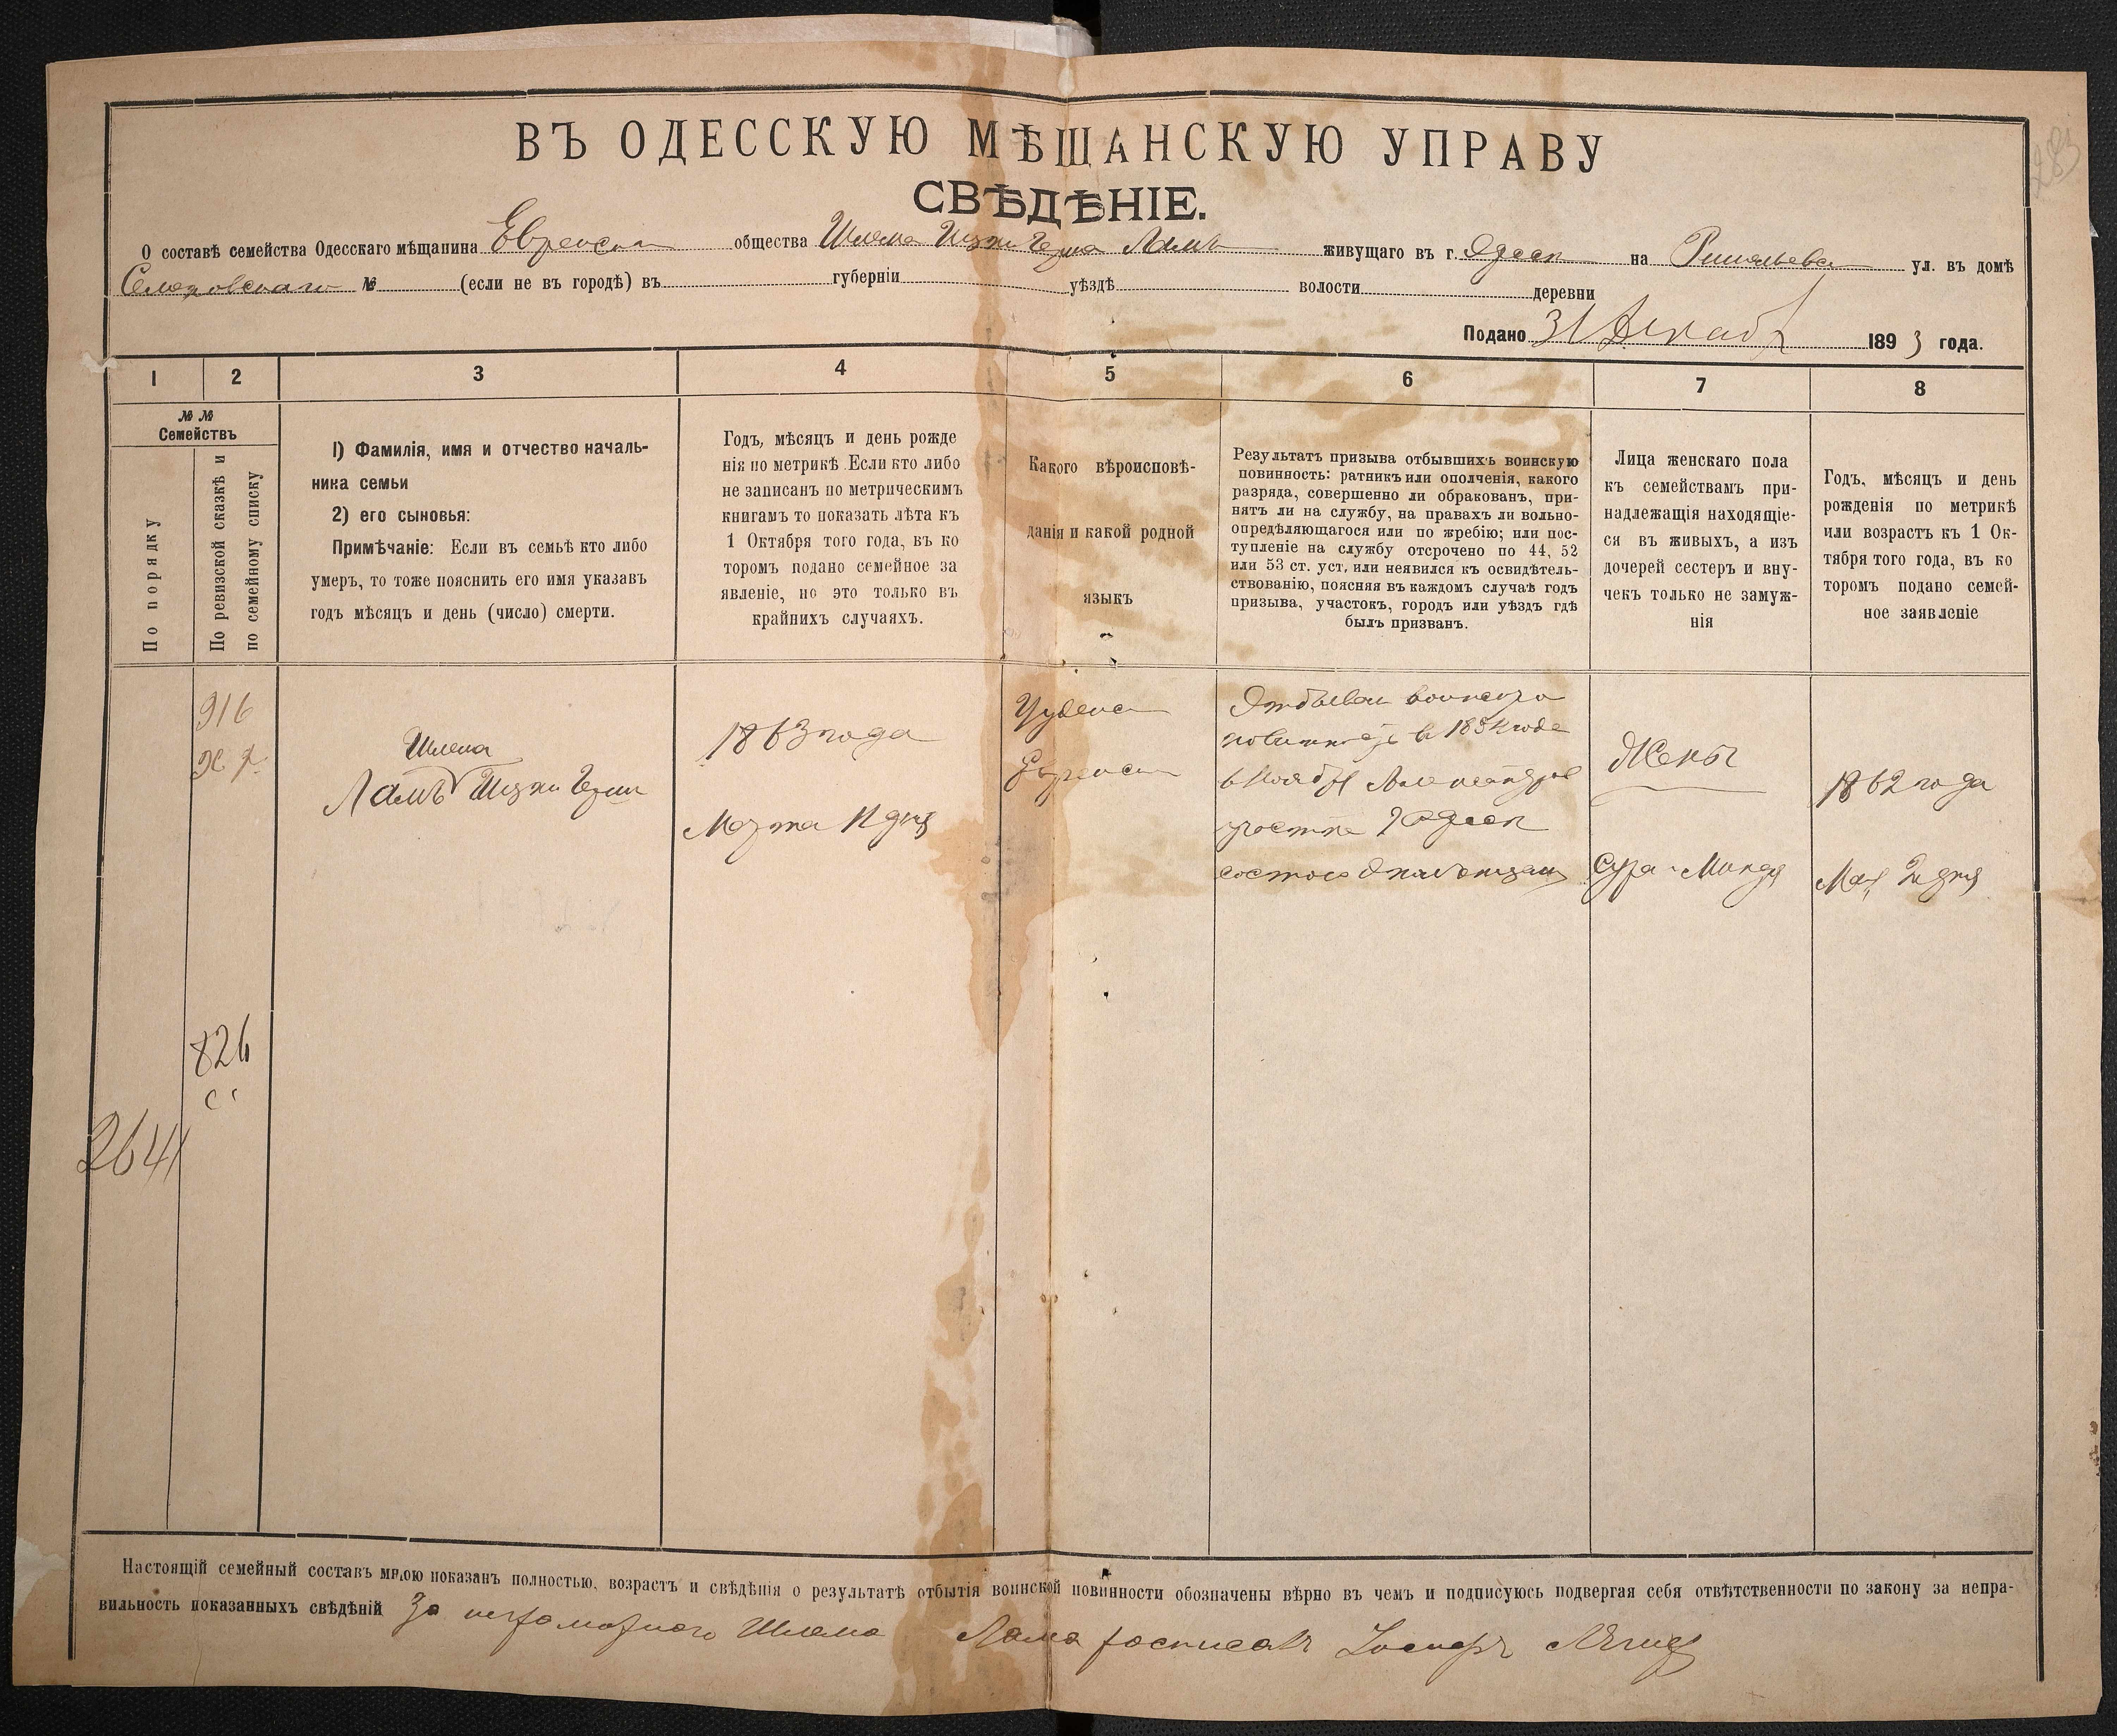 283
ВЪ ОДЕССКУЮ МѢЩАНСКУЮ УПРАВУ
СВѢДѢНІЕ.
О составѣ семейства Одесскаго мѣщанина Еврейска общества Шлема Ицки Герша Ламъ живущаго въ г. Одесе на Ришельевс ул. въ домѣ
№ (если не въ городѣ) въ губерніи уѣздѣ волости деревни
Подано 31 Декаб 1893 года.
1 2 3 4 5 6 7 8
№ №
Семействъ
По порядку
По ревизской сказкѣ и
по семейному списку
1) Фамилія, имя и отчество началь-
ника семьи
2) его сыновья:
Примѣчаніе: Если въ семьѣ кто либо
умеръ, то тоже пояснить его имя указавъ
годъ мѣсяцъ и день (число) смерти.
Годъ, мѣсяцъ и день рожде
нія по метрикѣ Если кто либо
не записанъ по метрическимъ
книгамъ то показать лѣта къ
1 Октября того года, въ ко
торомъ подано семейное за
явленіе, но это только въ
крайнихъ случаяхъ.
Какого вѣроисповѣ-
данія и какой родной
языкъ
Результатъ призыва отбывшихъ воинскую
повинность: ратникъ или ополченія, какого
разряда, совершенно ли обракованъ, при-
нятъ ли на службу, на правахъ ли вольно-
опредѣляющагося или по жребію; или пос-
тупленіе на службу отсрочено по 44, 52
или 53 ст. уст. или неявился къ освидѣтель-
ствованію, поясняя въ каждомъ случаѣ годъ
призыва, участокъ, городъ или уѣздъ гдѣ
былъ призванъ.
Лица женскаго пола
къ семействамъ при-
надлежащія находящіе-
ся въ живыхъ, а изъ
дочерей сестеръ и вну-
чекъ только не замуж-
нія
Годъ, мѣсяцъ и день
рожденія по метрикѣ
или возрастъ къ 1 Ок-
тября того года, въ ко
торомъ подано семей-
ное заявленіе
916
826
2641
Шлема
Ламъ Ицки Герш
1863 года
Марта 11 дня
Иудейс
Еврейс
Отбывал воинскую
в 1884 года
в Ноябр Александров
участке Одесе
Жены
Сура-Минця
1862 года
Мая 2 дня
Настоящій семейный составъ мною показанъ полностью, возрастъ и свѣдѣнія о результатѣ отбытія воинской повинности обозначены вѣрно въ чемъ и подписуюсь подвергая себя отвѣтственности по закону за непра-
вильность показанныхъ свѣдѣній За неграмотного Шлема Лама росписалъ